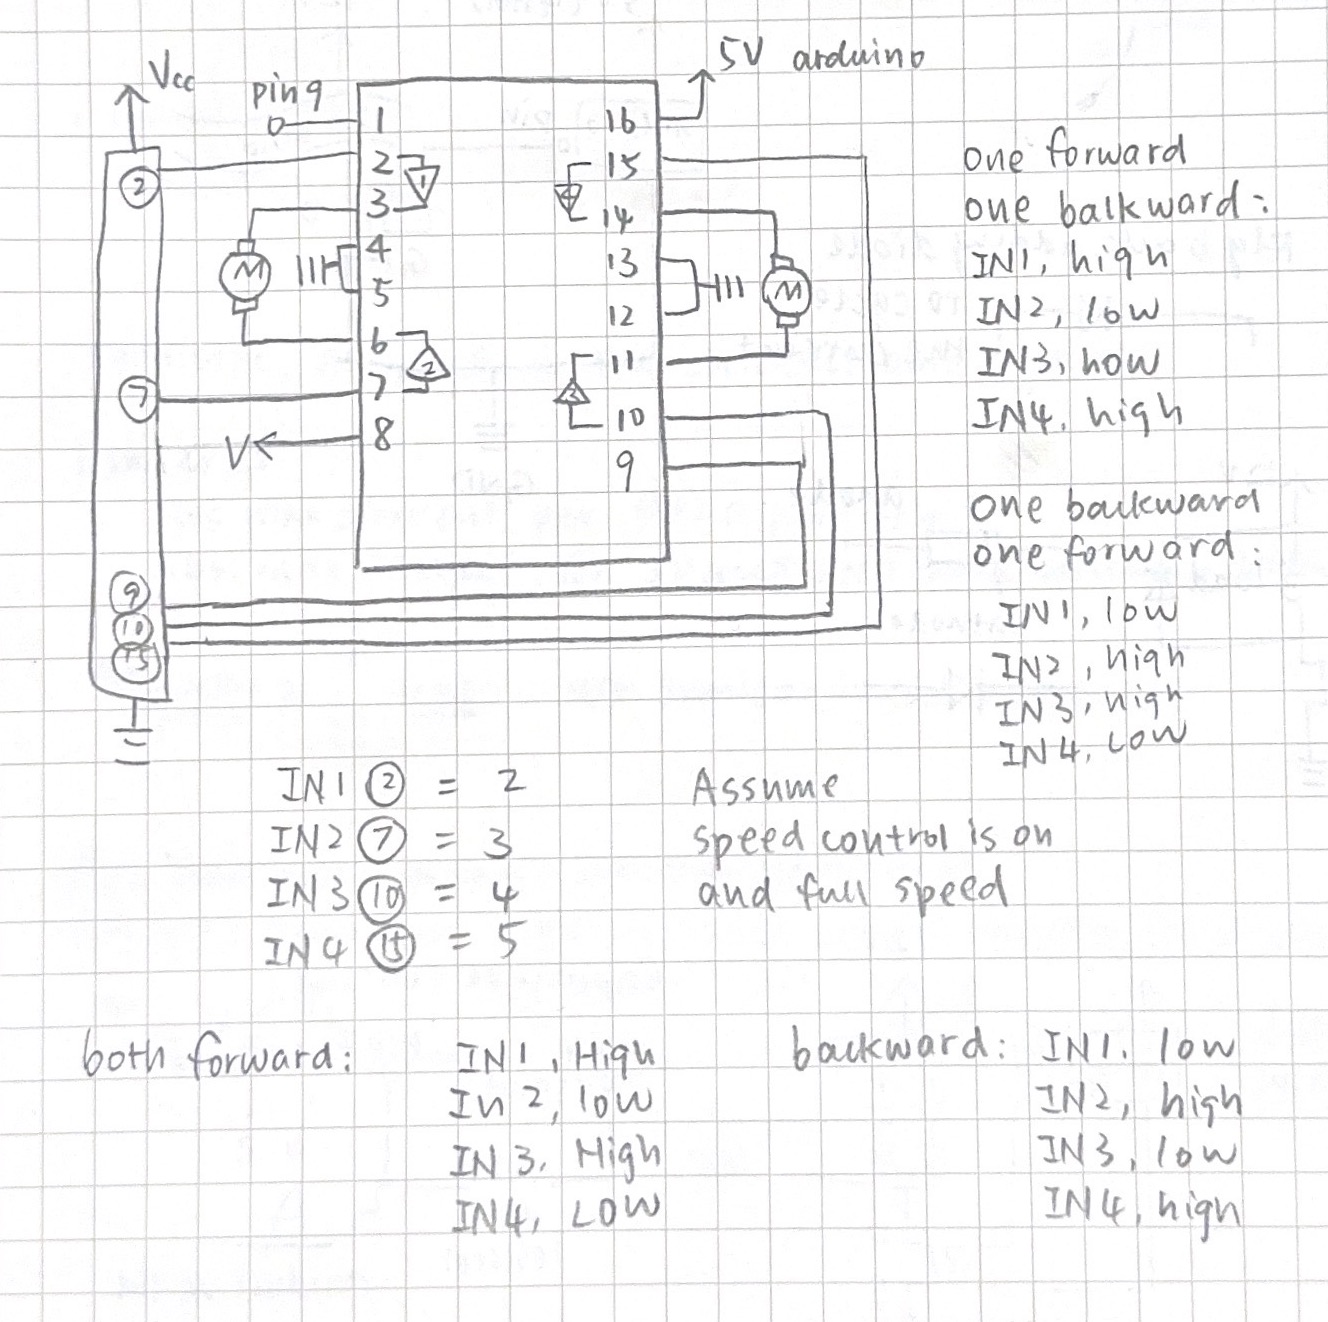 Vcc
pin 9
5V arduino
1
2
3
4
5
6
7
8
16
15
14
13
12
11
10
9
1
2
3
4
M
M
V
2
7
9
10
15
one forward
one balkward:
IN1, high
IN2, low
IN3, how
IN4, high
one backward
one forward:
IN1, low
IN2, high
IN3, high
IN4, LOW
IN1 ② = 2
IN2 ⑦ = 3
IN3 ⑩ = 4
IN4 ⑮ = 5
Assume
speed control is on
and full speed
both forward:
IN1, High
In 2, low
IN 3. High
IN4, LOW
backward: IN1. low
IN2, high
IN3, low
IN4, high